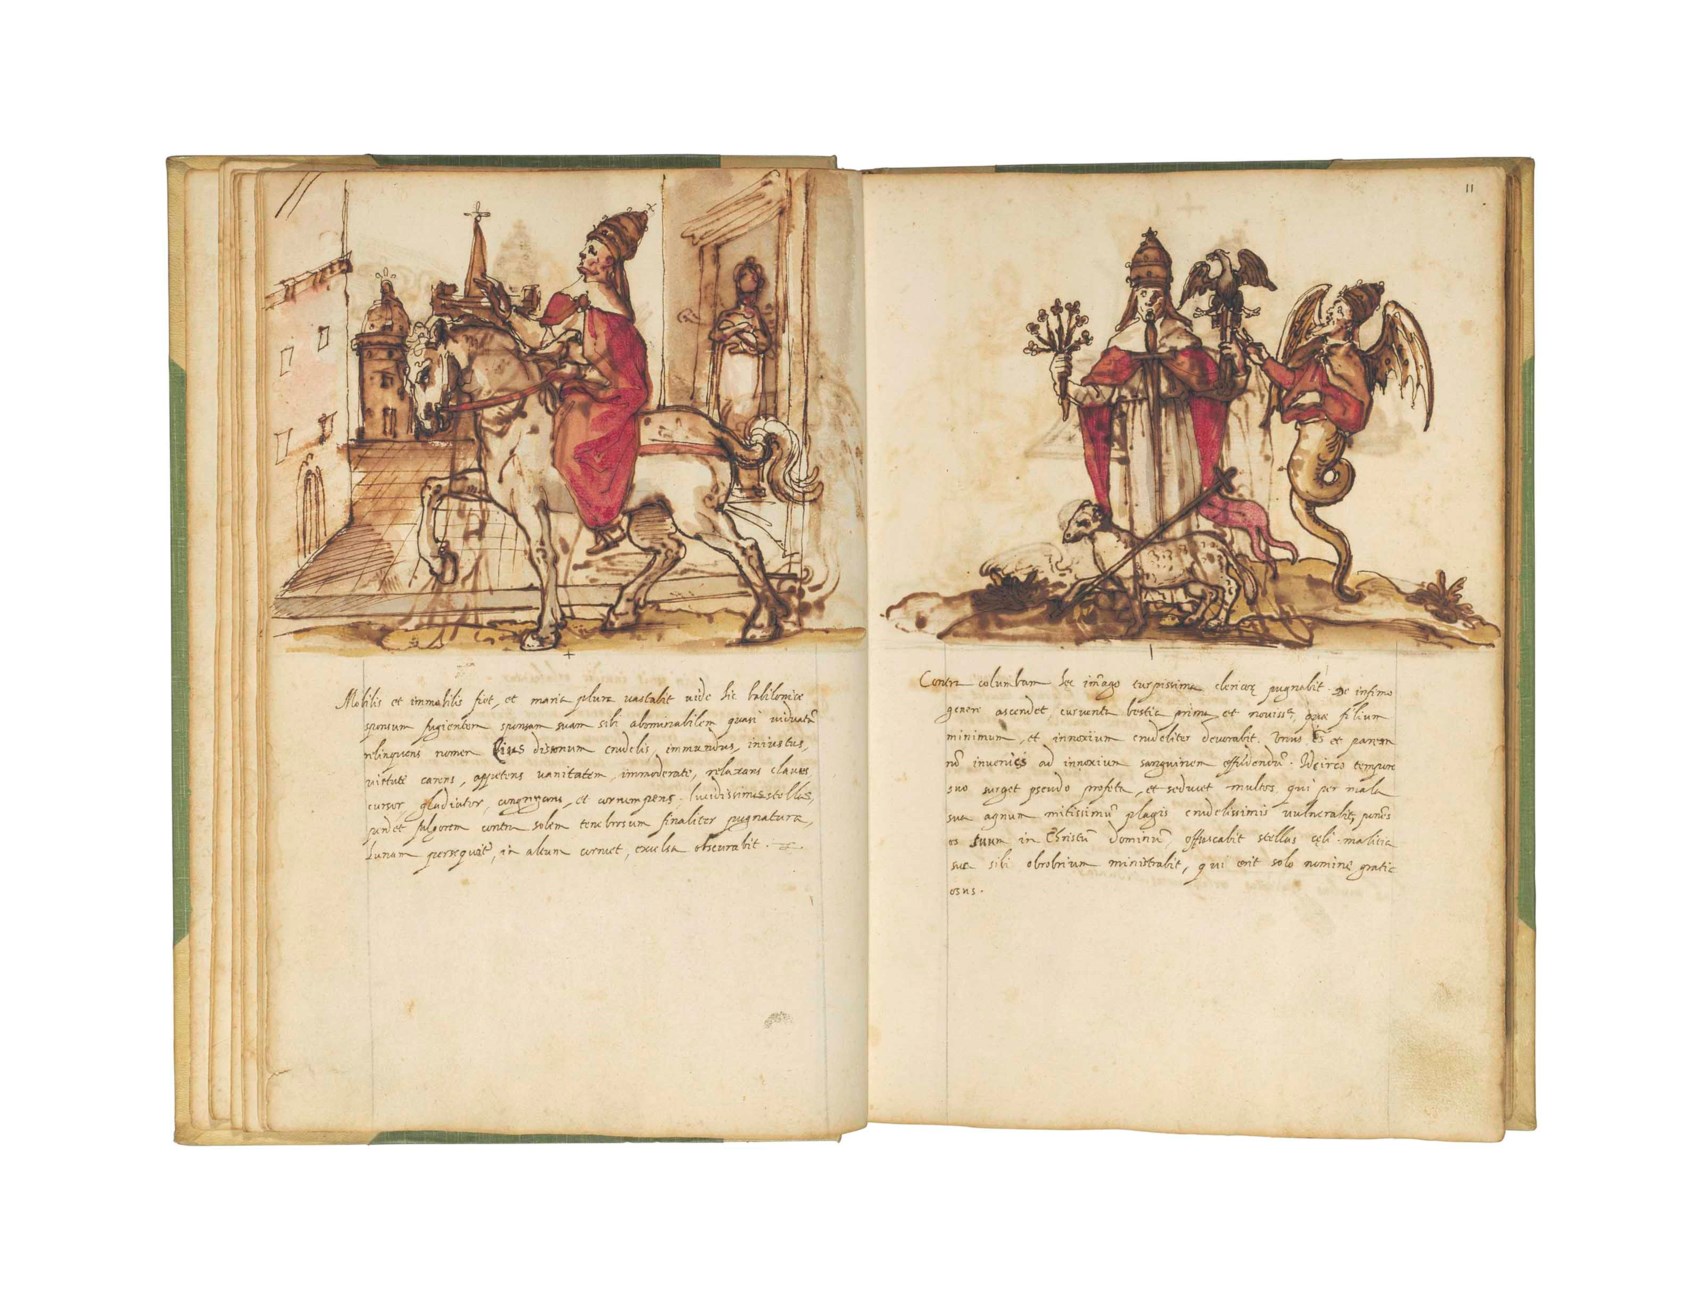 Mobilis et immobilis fiet, et maria plura vastabit vide hic babilonicę
sponsum fugientem sponsam suam sibi abominabilem quasi viduatā
relinquens nomen Eius dissonum crudelis, immundus, iniustus,
virtute carens, appetens vanitatem, immoderate, relaxans claves
cursor, gladiator, congregans, et corrumpens. lucidissimas stellas,
perdet fulgorem contra solem tenebrosum finaliter pugnatura,
Lunam persequēt, in altum cornuet, excelsa obscurabit.
11
Contra columbam hec imago turpissima clericoɽ pugnabit. De infimo
genere ascendet, cruenta bestia prima, et noviss.ª, quæ filium
minimum, et innoxium crudeliter devorabit. Unus Es et parem
nō invenies ad innoxium sanguinem effūdendū. Idcirco tempore
suo surget pseudo profeta, et seducet multos, qui per mala
sua agnum mitissimū plagis crudelissimis vulnerabit, ponēs
os suum in Christū dominū offuscabit stellas cęli. malitia
sua sibi obrobrium ministrabit, qui erit solo nomine gratic
osus.